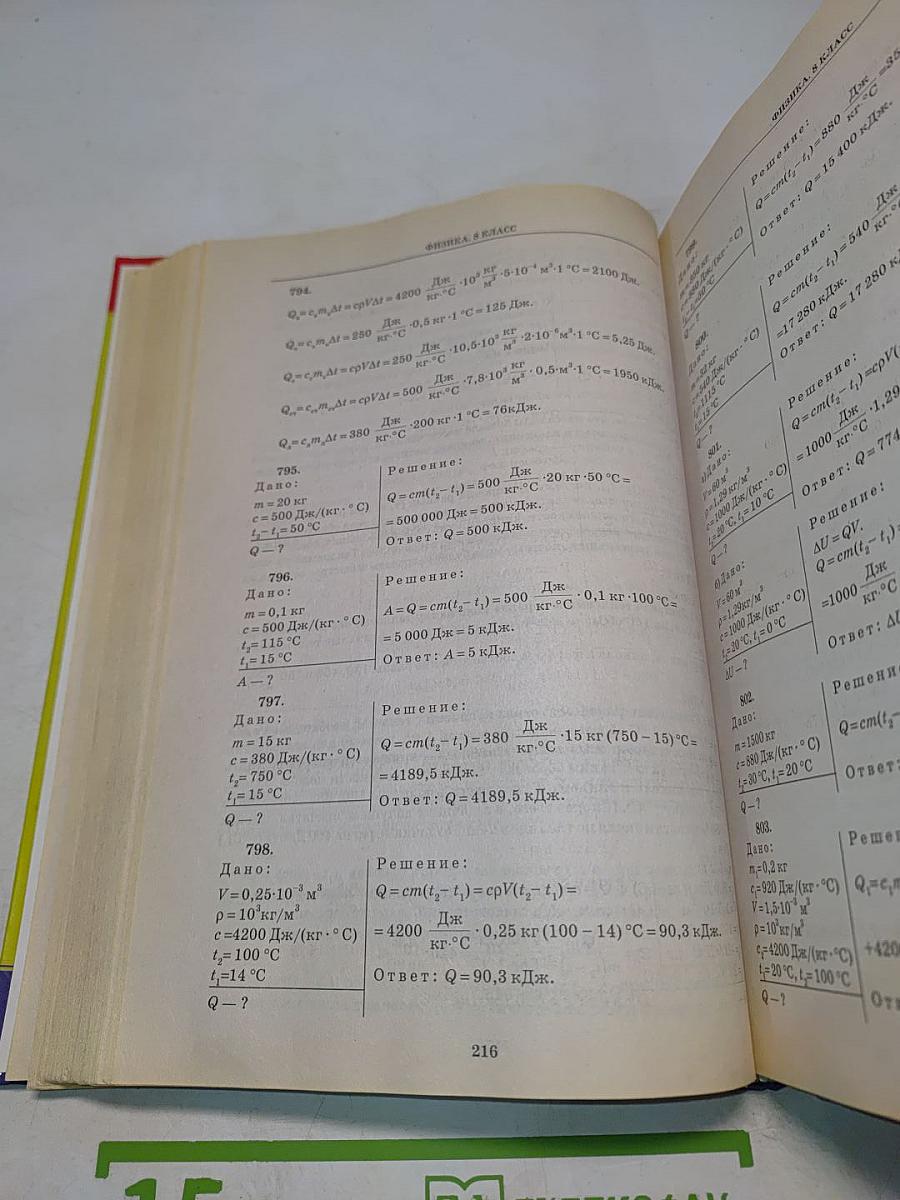 ФИЗИКА. 8 КЛАСС
794.
Qв=cвmвΔt=cρVΔt=4200 Дж/кг·°С ·10³ кг/м³ ·5·10⁻⁴ м³·1 °С=2100 Дж.
·0,5 кг·1 °С=125 Дж.
=cρVΔt=250 Дж/кг·°С ·10,5·10³ кг/м³ ·2·10⁻⁶м³·1 °С=5,25 Дж.
Δt=cρVΔt=500 Дж/кг·°С ·7,8·10³ кг/м³ ·0,5·м³·1 °С=1950 кДж.
Δt=380 Дж/кг·°С ·200 кг·1 °С=76кДж.
795.
Дано:
m=20 кг
c=500 Дж/(кг·°С)
t₂–t₁=50 °С
Q—?
Решение:
Q=cm(t₂–t₁)=500 Дж/кг·°С ·20 кг·50 °С=
=500 000 Дж=500 кДж.
Ответ: Q=500 кДж.
796.
Дано:
m=0,1 кг
c=500 Дж/(кг·°С)
t₂=115 °С
t₁=15 °С
A—?
Решение:
A=Q=cm(t₂–t₁)=500 Дж/кг·°С ·0,1 кг·100°С=
=5 000 Дж=5 кДж.
Ответ: A=5 кДж.
797.
Дано:
m=15 кг
c=380 Дж/(кг·°С)
t₂=750 °С
t₁=15 °С
Q—?
Решение:
Q=cm(t₂–t₁)=380 Дж/кг·°С ·15 кг(750–15)°С=
=4189,5 кДж.
Ответ: Q=4189,5 кДж.
798.
Дано:
V=0,25·10⁻³ м³
ρ=10³кг/м³
c=4200 Дж/(кг·°С)
t₂=100 °С
t₁=14 °С
Q—?
Решение:
Q=cm(t₂–t₁)=cρV(t₂–t₁)=
=4200 Дж/кг·°С ·0,25 кг(100–14)°С=90,3 кДж.
Ответ: Q=90,3 кДж.
216
ФИЗИКА. 8 КЛАСС
Дано:
Q—?
Решение:
Q=cm(t₂–t₁)=880 Дж/кг·°С
Ответ: Q=15 400 кДж.
800.
Дано:
Q—?
Решение:
Q=cm(t₂–t₁)=540 Дж/кг·°С
=17 280 кДж.
Ответ: Q=17 280
801.
а)Дано:
V=60 м³
ρ=1,29 кг/м³
c=1000 Дж/(кг·°С)
t₂=20°С, t₁=10 °С
Q—?
Решение:
Q=cm(t₂–t₁)=cρV(
=1000 Дж/кг·°С ·1,29
Ответ: Q=774
б)Дано:
V=60 м³
ρ=1,29кг/м³
c=1000 Дж/(кг·°С)
t₂=20°С, t₁=0°С
ΔU—?
Решение:
ΔU=QV.
Q=cm(t₂–t₁)=
=1000 Дж/кг·°С
Ответ:
802.
Дано:
m=1500кг
c=880 Дж/(кг·°С)
t₂=30°С, t₁=20 °С
Q—?
Q=cm(t₂–
Ответ:
803.
Дано:
m₁=0,2 кг
c₁=920 Дж/(кг·°С)
V=1,5·10⁻³ м³
ρ=10³кг/м³
c₂=4200 Дж/(кг·°С)
t₁=20°С, t₂=100 °С
Q—?
Q₁=c₁
+420
15